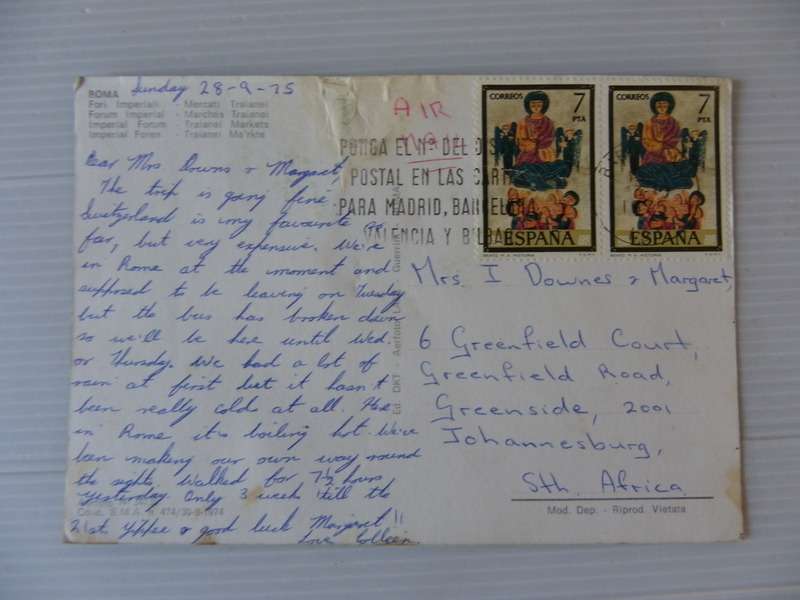 ROMA
Fori Imperiali - Mercati Traianei
Forum Imperial - Marchés Traianei
Imperial Forum - Traianei Markets
Imperial Foren - Traianei Ma'rkte
Sunday 28-9-75
Dear Mrs Downs & Margaret,
The trip is going fine.
Switzerland is my favourite so
far, but very expensive. We're
in Rome at the moment and
supposed to be leaving on Tuesday
but the bus has broken down
so we'll be here until Wed.
or Thursday. We had a lot of
rain at first but it hasn't
been really cold at all. Here
in Rome it's boiling hot. We're
been making our own way round
the sights. Walked for 7½ hours
yesterday. Only 3 weeks till the
21st. Yppee & good luck Margaret!!
Love Colleen.
474/30-9-1974
Ed. DKT - Aerfoto
AIR
MAIL
PONGA EL Nº DEL DIS
POSTAL EN LAS CART
PARA MADRID, BARCELONA
VALENCIA Y BILBAO
CORREOS 7 PTA
ESPAÑA
CORREOS 7 PTA
ESPAÑA
Mrs I Downes & Margaret,
6 Greenfield Court,
Greenfield Road,
Greenside, 2001
Johannesburg,
Sth. Africa
Mod. Dep. - Riprod. Vietata